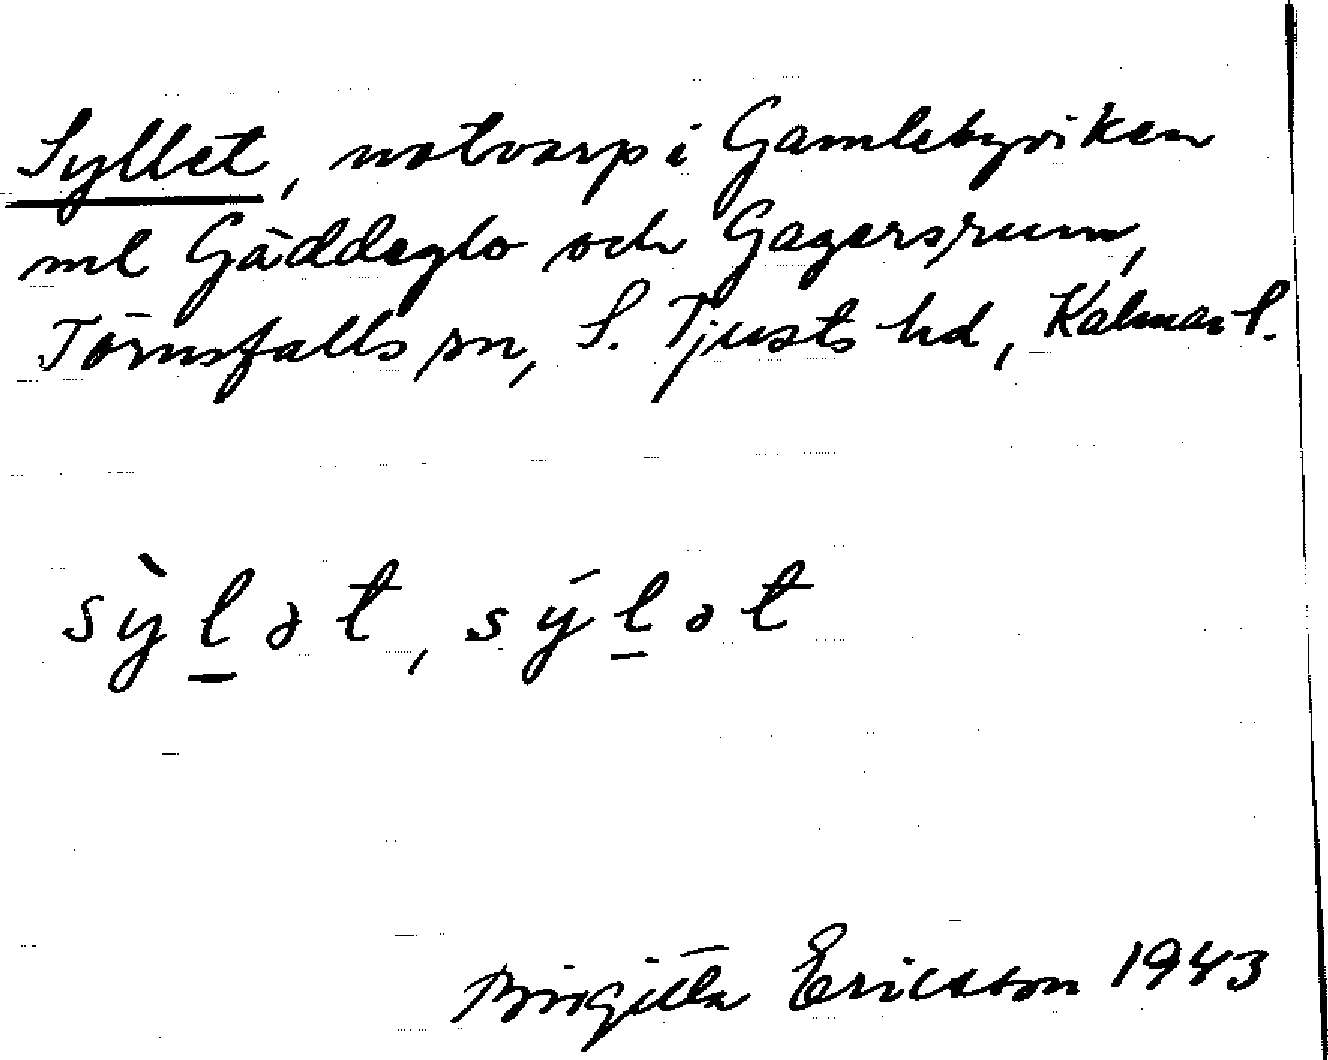 Syllet, notvarp i Gamlebyviken
ml Gäddeglo och Gagersrum,
Törnsfalls sn, S. Tjusts hd, Kalmar l.
sỳl̠ət, sýl̠ət
Birgitta Ericsson 1943